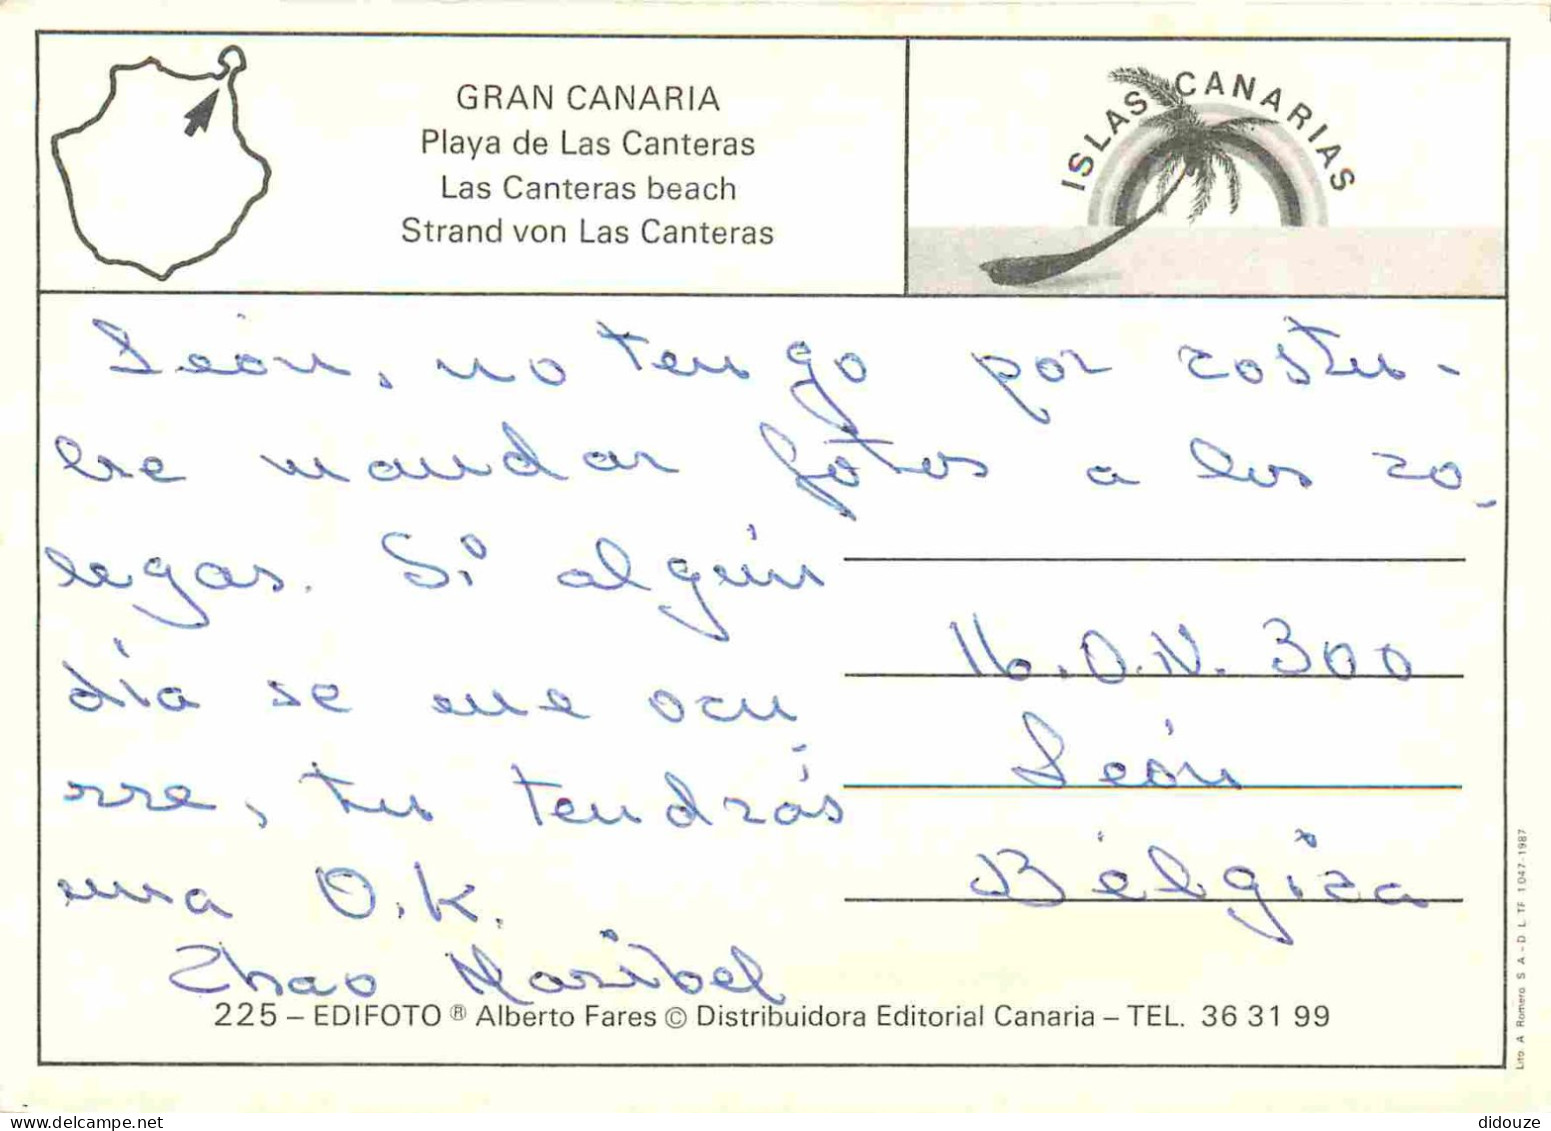 GRAN CANARIA
Playa de Las Canteras
Las Canteras beach
Strand von Las Canteras
ISLAS CANARIAS
León, no tengo por costu-
bre mandar fotos a los co-
legas. Si algún
día se me ocu
rre, tu tendrás
una O.K.
Zhao Maribel
16.O.N. 300
León
Bélgica
225 – EDIFOTO ® Alberto Fares © Distribuidora Editorial Canaria – TEL. 36 31 99
Lito. A Romero S A - D L TF 1 047 - 1987
didouze